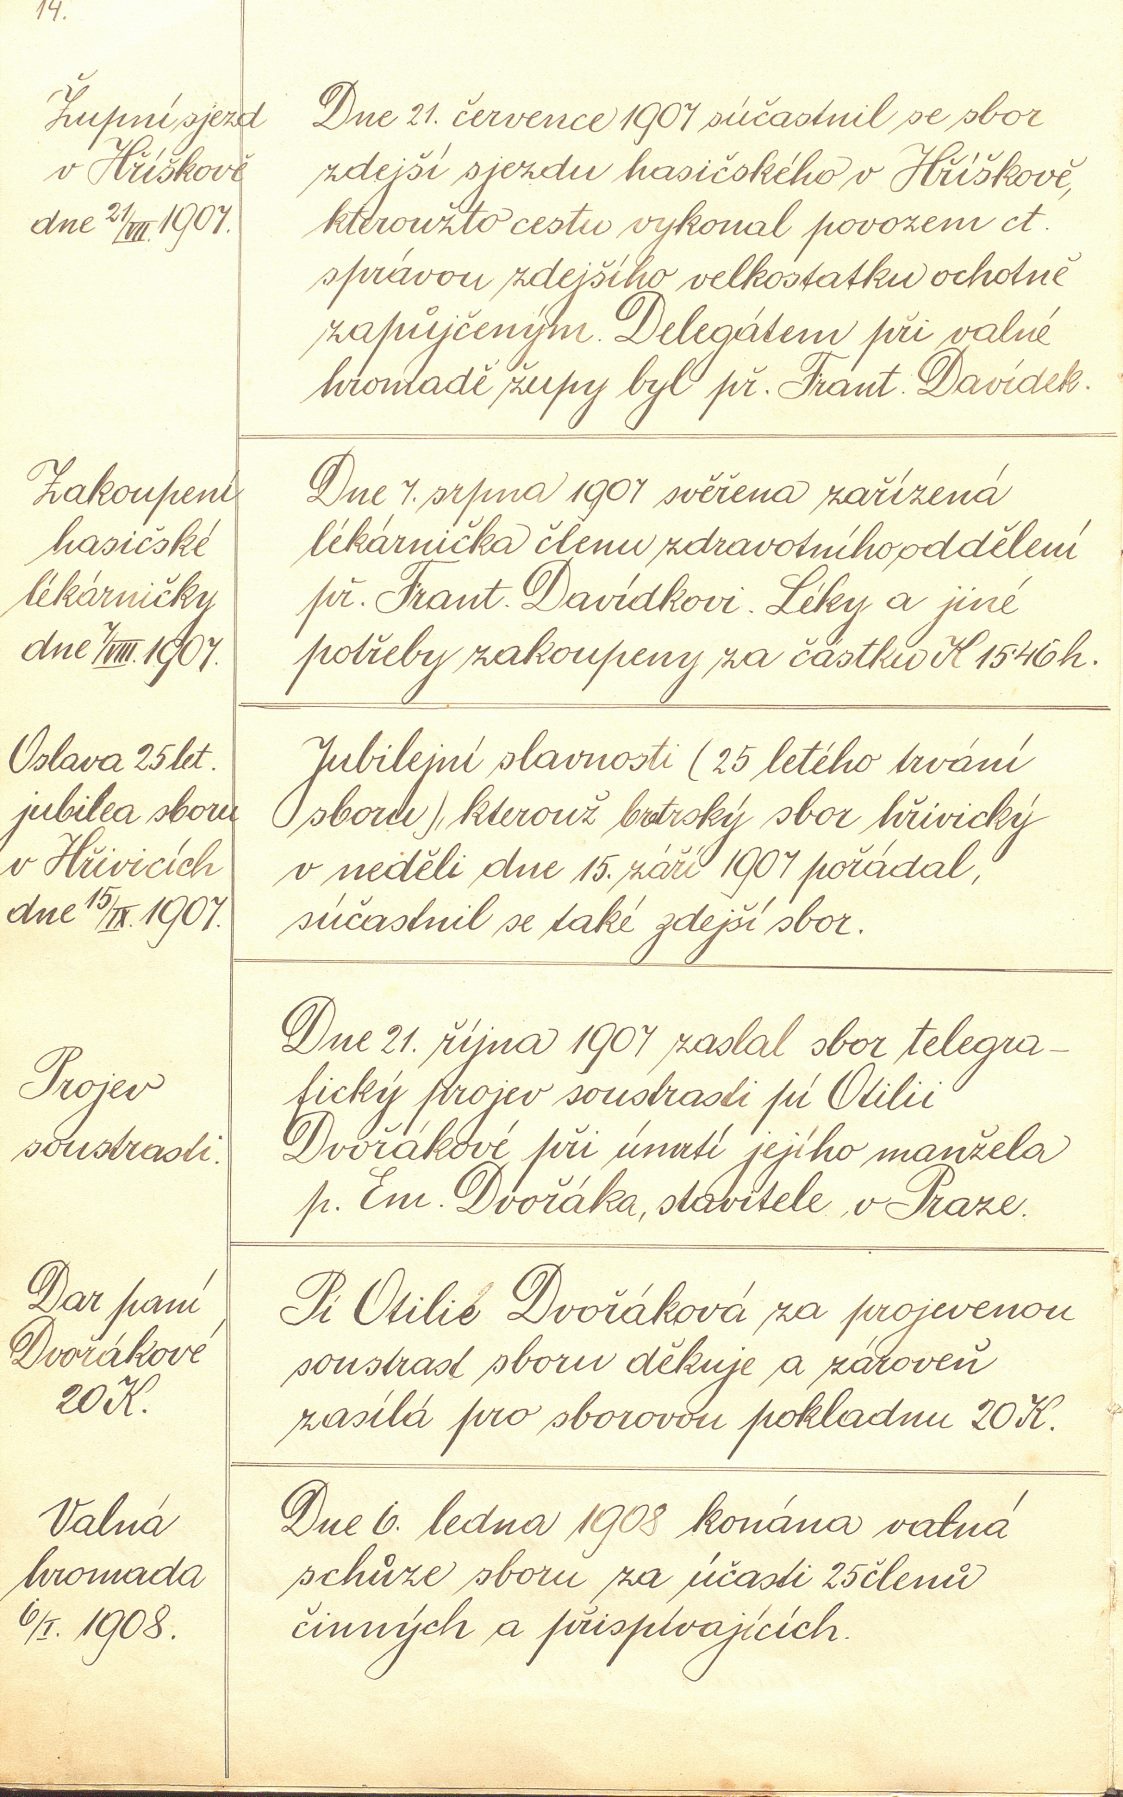 14.
Župní sjezd
v Hříškově
dne 21/VII. 1907.
Dne 21. července 1907 súčastnil se sbor
zdejší sjezdu hasičského v Hříškově,
kteroužto cestu vykonal povozem ct.
správou zdejšího velkostatku ochotně
zapůjčeným. Delegátem při valné
hromadě župy byl př. Frant. Davídek.
Zakoupení
hasičské
lékárničky
dne 7/VIII. 1907.
Dne 7. srpna 1907 svěřena zařízená
lékárnička členu zdravotního oddělení
př. Frant. Davídkovi. Léky a jiné
potřeby zakoupeny za částku K 15·46 h.
Oslava 25 let.
jubilea sboru
v Hřivicích
dne 15/IX. 1907.
Jubilejní slavnosti (25 letého trvání
sboru), kterouž bratrský sbor hřivický
v neděli dne 15. září 1907 pořádal,
súčastnil se také zdejší sbor.
Projev
soustrasti.
Dne 21. října 1907 zaslal sbor telegra-
fický projev soustrasti pí Otilii
Dvořákové při úmrtí jejího manžela
p. Em. Dvořáka, stavitele v Praze.
Dar paní
Dvořákové
20 K.
Pí Otilie Dvořáková za projevenou
soustrast sboru děkuje a zároveň
zasílá pro sborovou pokladnu 20 K.
Valná
hromada
6/I. 1908.
Dne 6. ledna 1908 konána valná
schůze sboru za účasti 25 členů
činných a přispívajících.